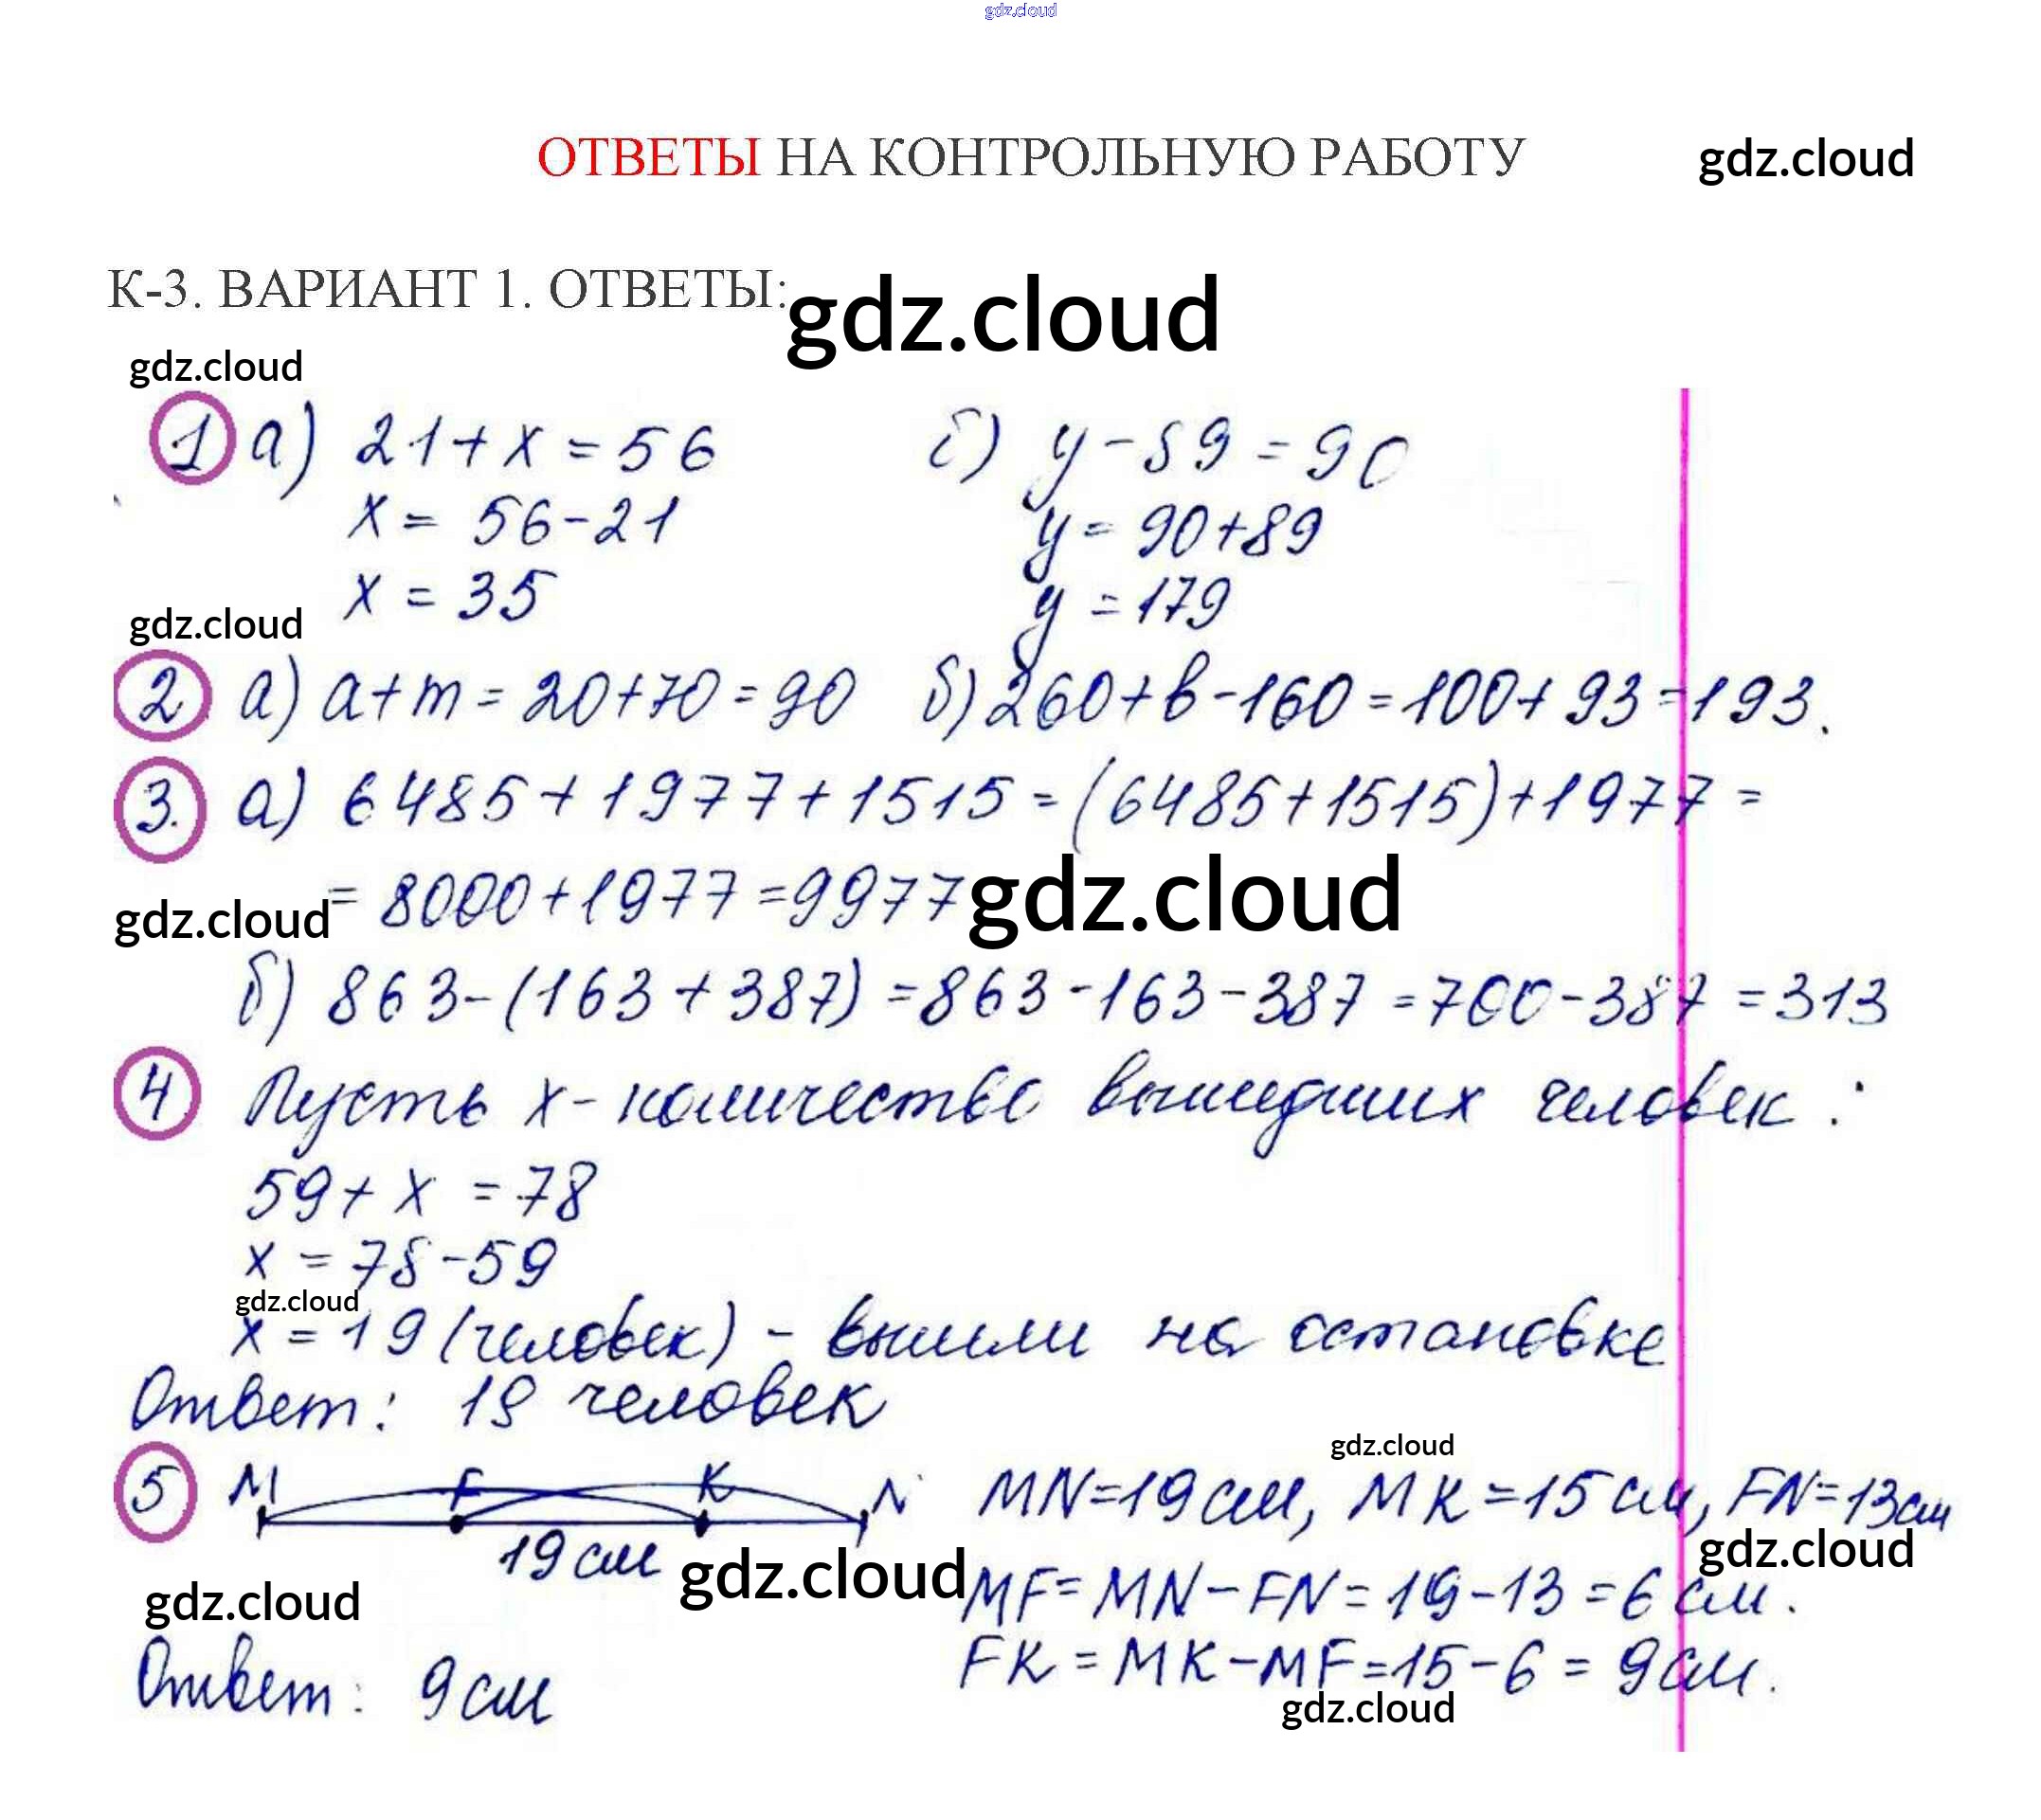 gdz.cloud
ОТВЕТЫ НА КОНТРОЛЬНУЮ РАБОТУ gdz.cloud
К-3. ВАРИАНТ 1. ОТВЕТЫ: gdz.cloud
gdz.cloud
1 а) 21+x=56 б) y-89=90
x= 56-21 y=90+89
x = 35 y=179
gdz.cloud
2 а) a+m=20+70=90 б) 260+b-160=100+93=193.
3. а) 6485+1977+1515=(6485+1515)+1977=
= 8000+1977=9977 gdz.cloud
gdz.cloud
б) 863-(163+387)=863-163-387=700-387=313
4 Пусть x-количество вышедших человек:
59+x=78
x=78-59
gdz.cloud
x=19 (человек) - вышли на остановке
Ответ: 19 человек
gdz.cloud
5 M F K N MN=19см, MK=15см, FN=13см
19 см gdz.cloud gdz.cloud
gdz.cloud MF=MN-FN=19-13=6см.
Ответ: 9см FK=MK-MF=15-6=9см.
gdz.cloud